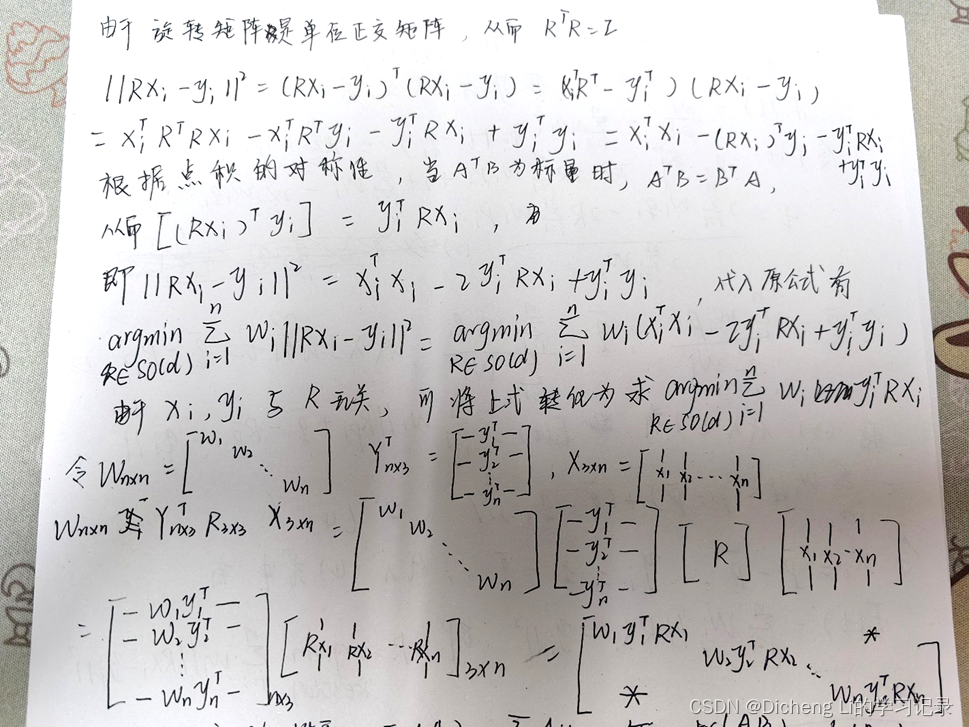 由于旋转矩阵是单位正交矩阵，从而 RᵀR=I
||Rxᵢ-yᵢ||² = (Rxᵢ-yᵢ)ᵀ(Rxᵢ-yᵢ) = (xᵢᵀRᵀ-yᵢᵀ)(Rxᵢ-yᵢ)
= xᵢᵀRᵀRxᵢ - xᵢᵀRᵀyᵢ - yᵢᵀRxᵢ + yᵢᵀyᵢ = xᵢᵀxᵢ - (Rxᵢ)ᵀyᵢ - yᵢᵀRxᵢ + yᵢᵀyᵢ
根据点积的对称性，当AᵀB为标量时，AᵀB=BᵀA，
从而[(Rxᵢ)ᵀyᵢ] = yᵢᵀRxᵢ，
即||Rxᵢ-yᵢ||² = xᵢᵀxᵢ - 2yᵢᵀRxᵢ + yᵢᵀyᵢ，代入原公式有
argmin R∈SO(d) Σ i=1 n wᵢ||Rxᵢ-yᵢ||² = argmin R∈SO(d) Σ i=1 n wᵢ(xᵢᵀxᵢ - 2yᵢᵀRxᵢ + yᵢᵀyᵢ)
由于xᵢ,yᵢ与R无关，可将上式转化为求 argmin R∈SO(d) Σ i=1 n wᵢ yᵢᵀRxᵢ
令Wn×n = [w₁ w₂ ⋱ wn] Yᵀn×3 = [-y₁ᵀ- -y₂ᵀ- ⋮ -ynᵀ-], X3×n = [x₁ x₂ ⋯ xn]
Wn×n Yᵀn×3 R3×3 X3×n = [w₁ w₂ ⋱ wn] [-y₁ᵀ- -y₂ᵀ- ⋮ -ynᵀ-] [R] [x₁ x₂ ⋯ xn]
= [-w₁y₁ᵀ- -w₂y₂ᵀ- ⋮ -wnynᵀ-]n×3 [Rx₁ Rx₂ ⋯ Rxn]3×n = [w₁y₁ᵀRx₁ * w₂y₂ᵀRx₂ ⋱ * wnynᵀRxn]
CSDN @Dicheng Li的学习记录